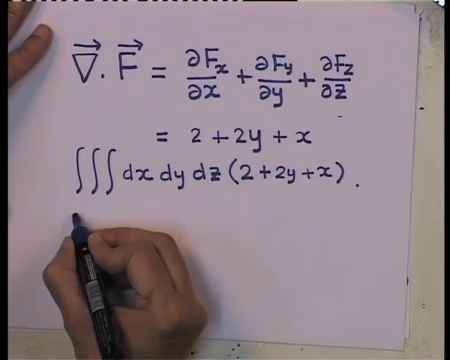 ∇⃗ . F⃗ = ∂Fx/∂x + ∂Fy/∂y + ∂Fz/∂z
= 2 + 2y + x
∫∫∫ dx dy dz (2 + 2y + x) .